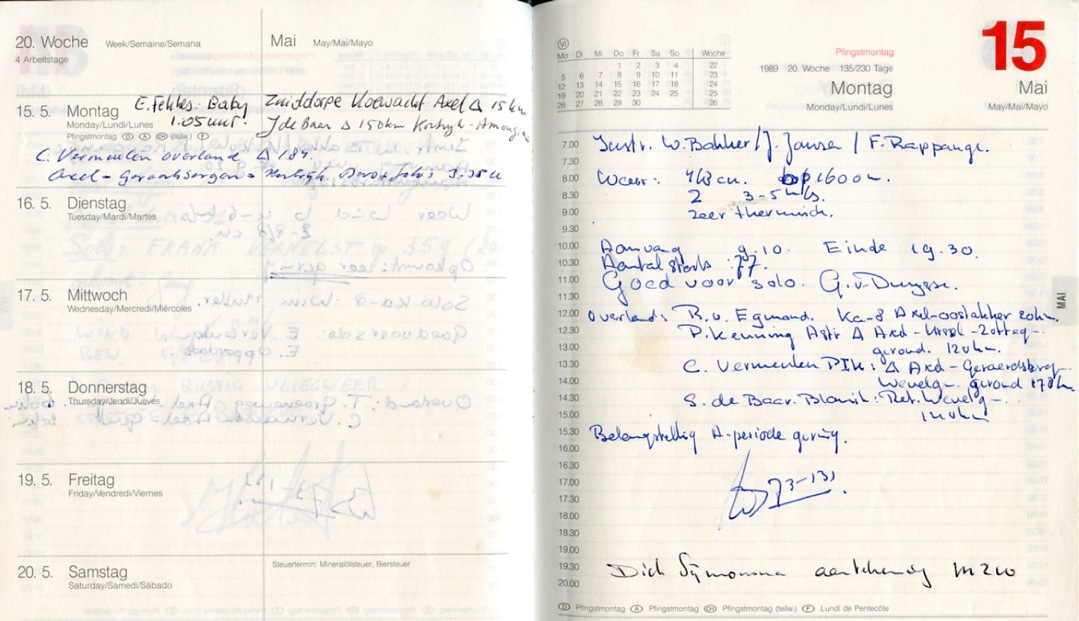 20. Woche Week/Semaine/Semana
4 Arbeitstage
Mai May/Mai/Mayo
15. 5. Montag
Monday/Lundi/Lunes
Pfingstmontag D A CH (teilw.) F
E. Fekkes. Baby
1.05 uur.
Zuiddorpe Koewacht Axel Δ 15 km
J de Baar Δ 150km Kortrijk -
C. Vermeulen overland Δ 184.
Axel - Geraardsbergen -
16. 5. Dienstag
Tuesday/Mardi/Martes
17. 5. Mittwoch
Wednesday/Mercredi/Miércoles
18. 5. Donnerstag
Thursday/Jeudi/Jueves
19. 5. Freitag
Friday/Vendredi/Viernes
20. 5. Samstag
Saturday/Samedi/Sábado
Steuertermin: Mineralölsteuer, Biersteuer
VI
Mo Di Mi Do Fr Sa So Woche
1 2 3 4 22
5 6 7 8 9 10 11 23
12 13 14 15 16 17 18 24
19 20 21 22 23 24 25 25
26 27 28 29 30 26
Pfingstmontag
1989 20. Woche 135/230 Tage
Montag
Monday/Lundi/Lunes
15
Mai
May/Mai/Mayo
MAI
7.00 Instr. W. Bakker / J. Jansen / F. Rappange.
7.30
8.00 Weer: 4/8 cu. op 1600 m.
8.30 2 3-5 m/s.
9.00 zeer thermisch.
9.30
10.00 Aanvang 9.10. Einde 19.30.
10.30 Aantal starts: 77.
11.00 Goed voor solo. G. v. Duyse.
11.30
12.00 Overland: R. v. Egmond. Ka-8 Axel-oostakker 20km.
12.30 P. Kenning Astir Δ Axel - Ursel - Zotteg -
13.00 geirond. 120 km.
13.30 C. Vermeulen PIK: Δ Axel - Geraerdsberg -
14.00 Wevelg - geirond 178 km
14.30 S. de Baar. Blanik: Ret. Wevelg -
15.00 120 km
15.30 Belangstelling A-periode gering.
16.00
16.30
17.00
17.30
18.00
18.30
19.00
19.30 Dick Symonsma aantekening M200
20.00
D Pfingstmontag A Pfingstmontag CH Pfingstmontag (teilw.) F Lundi de Pentecôte